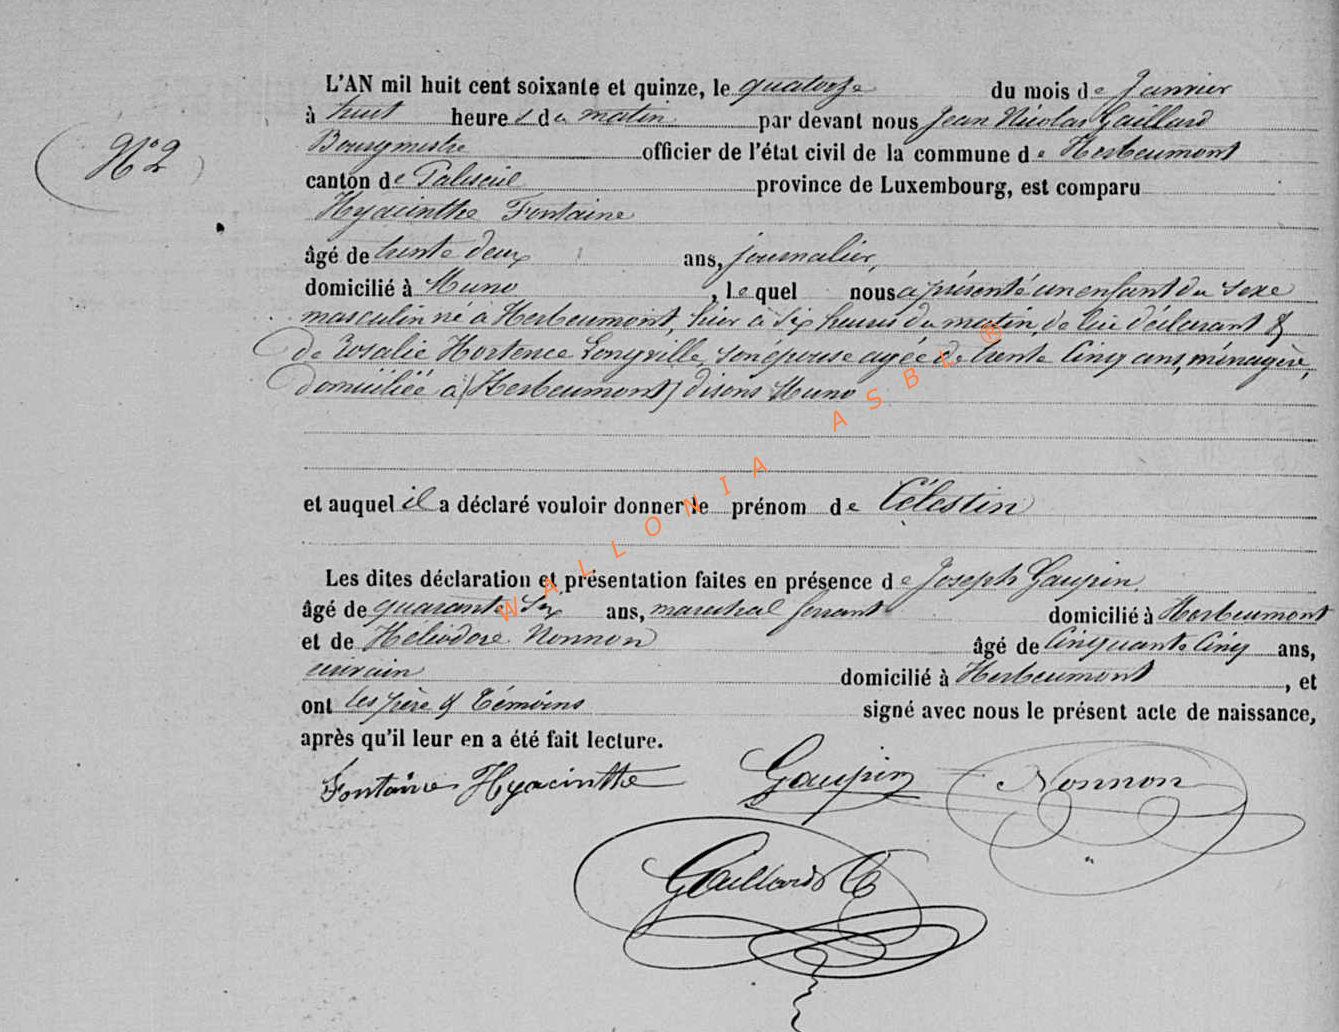 L'AN mil huit cent soixante et quinze, le quatorze du mois de Janvier
N° 2
à huit heures du matin par devant nous Jean Nicolas Gaillard
Bourgmestre officier de l'état civil de la commune de Herbeumont
canton de Paliseul province de Luxembourg, est comparu
Hyacinthe Fontaine
âgé de trente deux ans, journalier,
domicilié à Muno, lequel nous a présenté un enfant du sexe
masculin né à Herbeumont, hier à six heures du matin, de lui déclarant &
de Rosalie Hortence Longville, son épouse agée de trente cinq ans, ménagère,
domiciliée à (Herbeumont) disons Muno
et auquel il a déclaré vouloir donner le prénom de Célestin
Les dites déclaration et présentation faites en présence de Joseph Gaupin
âgé de quarante six ans, marechal ferrant domicilié à Herbeumont
et de Héliodore Nonnon âgé de cinquante cinq ans,
domicilié à Herbeumont, et
ont les père & témoins signé avec nous le présent acte de naissance,
après qu'il leur en a été fait lecture.
Fontaine Hyacinthe Gaupin Nonnon
Gaillard
WALLONIA ASBL ®